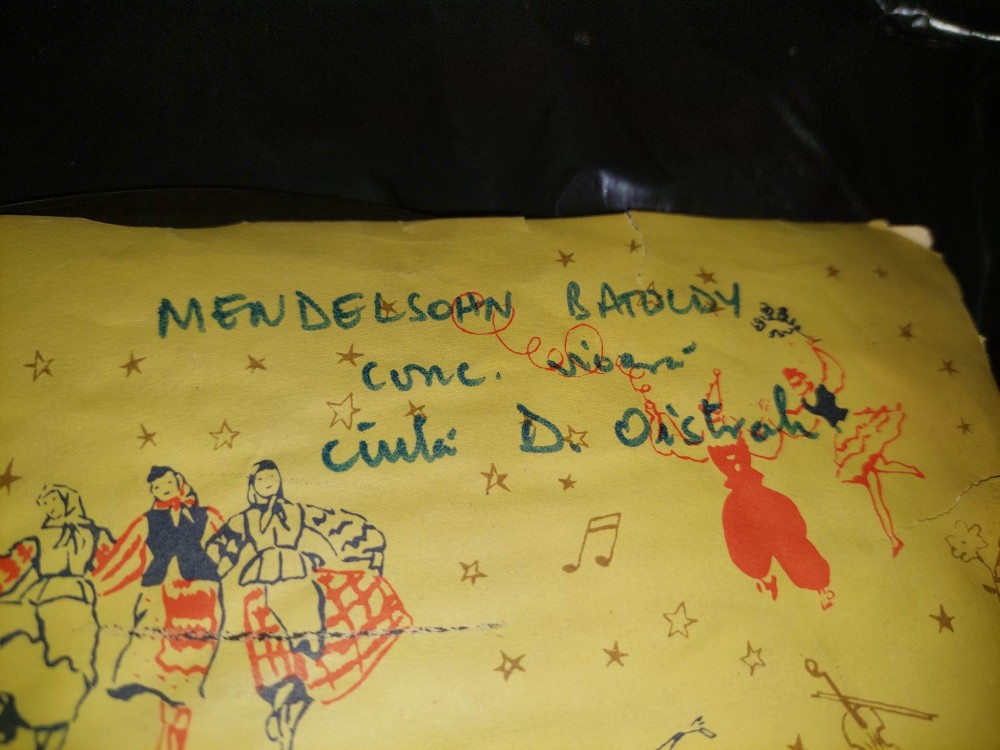 MENDELSOHN BATOLDY
conc. vioară
Cîntă D. Oistrah